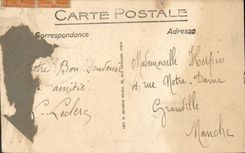 CARTE POSTALE
Correspondance
Adresse
Bon Souvenir
amitié
L. Leclerc
Mademoiselle Herpin
4 rue Notre-Dame
Granville
Manche